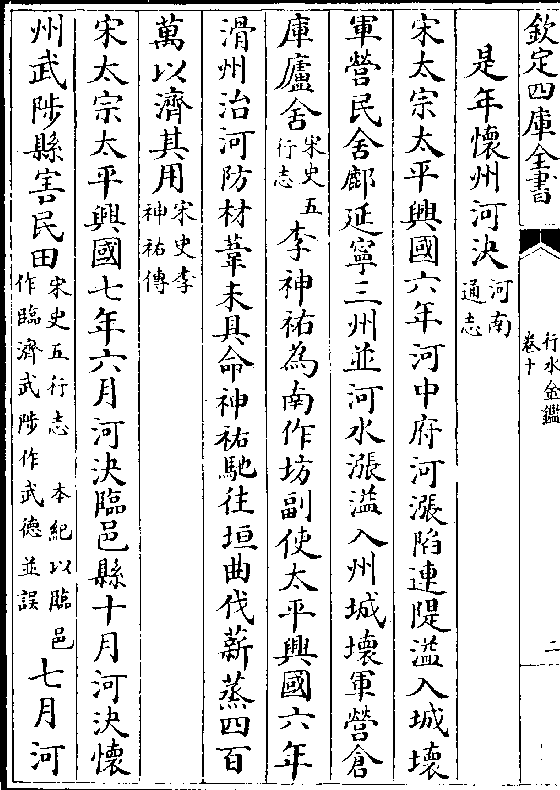 欽定四庫全書
行水金鑑
卷十
二
是年懷州河決河南通志
宋太宗太平興國六年河中府河漲陷連隄溢入城壞
軍營民舍鄜延寧三州並河水漲溢入州城壞軍營倉
庫廬舍宋史五行志李神祐為南作坊副使太平興國六年
滑州治河防材葦未具命神祐馳往垣曲伐薪蒸四百
萬以濟其用宋史李神祐傳
宋太宗太平興國七年六月河決臨邑縣十月河決懷
州武陟縣害民田宋史五行志 本紀以臨邑作臨濟武陟作武德並誤七月河